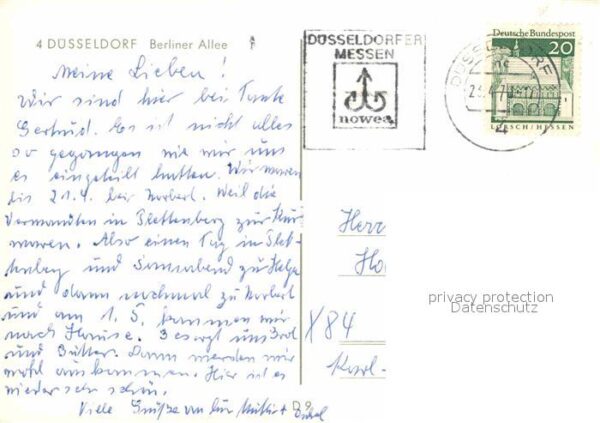 4 DÜSSELDORF Berliner Allee
DÜSSELDORFER
MESSEN
nowea
Deutsche Bundespost
20
LORSCH/HESSEN
DÜSSELDORF
Meine Lieben!
Wir sind hier bei Tante
Gertrud. Es ist nicht alles
so gegangen wie wir uns
es eingeteilt hatten. Wir waren
bis 21.4. bei Norbert. Weil die
Verwandten in Plettenberg zur Kur
waren. Also einen Tag in Plet-
tenberg und Sonnabend zu Helga
und dann nochmal zu Norbert
und am 1.5. kommen wir
nach Hause. Besorgt uns Brot
und Butter. Dann werden wir
wohl auskommen. Hier ist es
wieder sehr schön.
Viele Grüße von
Herr
X84
Karl-
D 9
privacy protection
Datenschutz